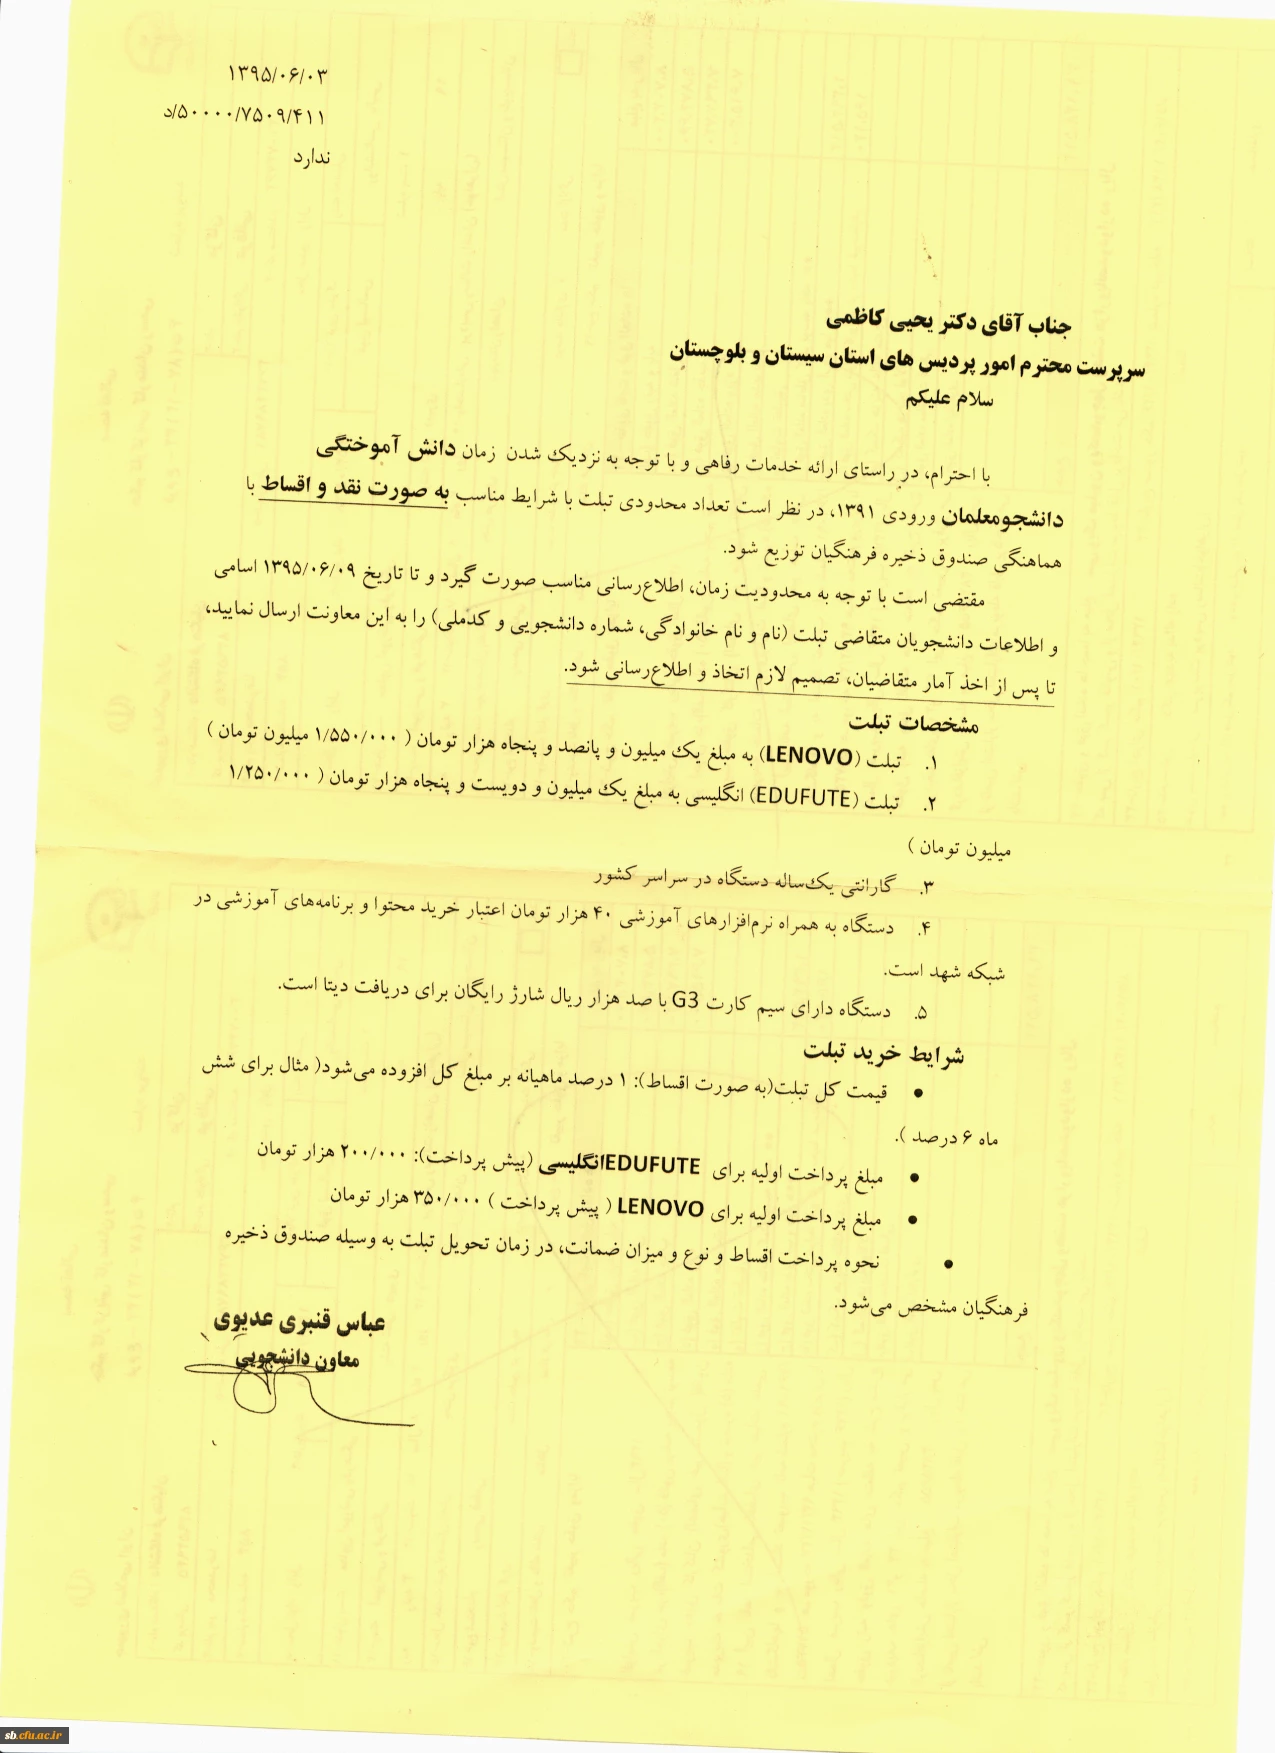 ۱۳۹۵/۰۶/۰۳
۵۰۰۰۰/۷۵۰۹/۴۱۱/د
ندارد
جناب آقای دکتر یحیی کاظمی
سرپرست محترم امور پردیس های استان سیستان و بلوچستان
سلام علیکم
با احترام، در راستای ارائه خدمات رفاهی و با توجه به نزدیک شدن زمان دانش آموختگی
دانشجومعلمان ورودی ۱۳۹۱، در نظر است تعداد محدودی تبلت با شرایط مناسب به صورت نقد و اقساط با
هماهنگی صندوق ذخیره فرهنگیان توزیع شود.
مقتضی است با توجه به محدودیت زمان، اطلاع‌رسانی مناسب صورت گیرد و تا تاریخ ۱۳۹۵/۰۶/۰۹ اسامی
و اطلاعات دانشجویان متقاضی تبلت (نام و نام خانوادگی، شماره دانشجویی و کدملی) را به این معاونت ارسال نمایید،
تا پس از اخذ آمار متقاضیان، تصمیم لازم اتخاذ و اطلاع‌رسانی شود.
مشخصات تبلت
۱. تبلت (LENOVO) به مبلغ یک میلیون و پانصد و پنجاه هزار تومان ( ۱/۵۵۰/۰۰۰ میلیون تومان )
۲. تبلت (EDUFUTE) انگلیسی به مبلغ یک میلیون و دویست و پنجاه هزار تومان ( ۱/۲۵۰/۰۰۰
میلیون تومان )
۳. گارانتی یک‌ساله دستگاه در سراسر کشور
۴. دستگاه به همراه نرم‌افزارهای آموزشی ۴۰ هزار تومان اعتبار خرید محتوا و برنامه‌های آموزشی در
شبکه شهد است.
۵. دستگاه دارای سیم کارت G3 با صد هزار ریال شارژ رایگان برای دریافت دیتا است.
شرایط خرید تبلت
• قیمت کل تبلت(به صورت اقساط): ۱ درصد ماهیانه بر مبلغ کل افزوده می‌شود( مثال برای شش
ماه ۶ درصد ).
• مبلغ پرداخت اولیه برای EDUFUTEانگلیسی (پیش پرداخت): ۲۰۰/۰۰۰ هزار تومان
• مبلغ پرداخت اولیه برای LENOVO ( پیش پرداخت ) ۳۵۰/۰۰۰ هزار تومان
• نحوه پرداخت اقساط و نوع و میزان ضمانت، در زمان تحویل تبلت به وسیله صندوق ذخیره
فرهنگیان مشخص می‌شود.
عباس قنبری عدیوی
معاون دانشجویی
sb.cfu.ac.ir